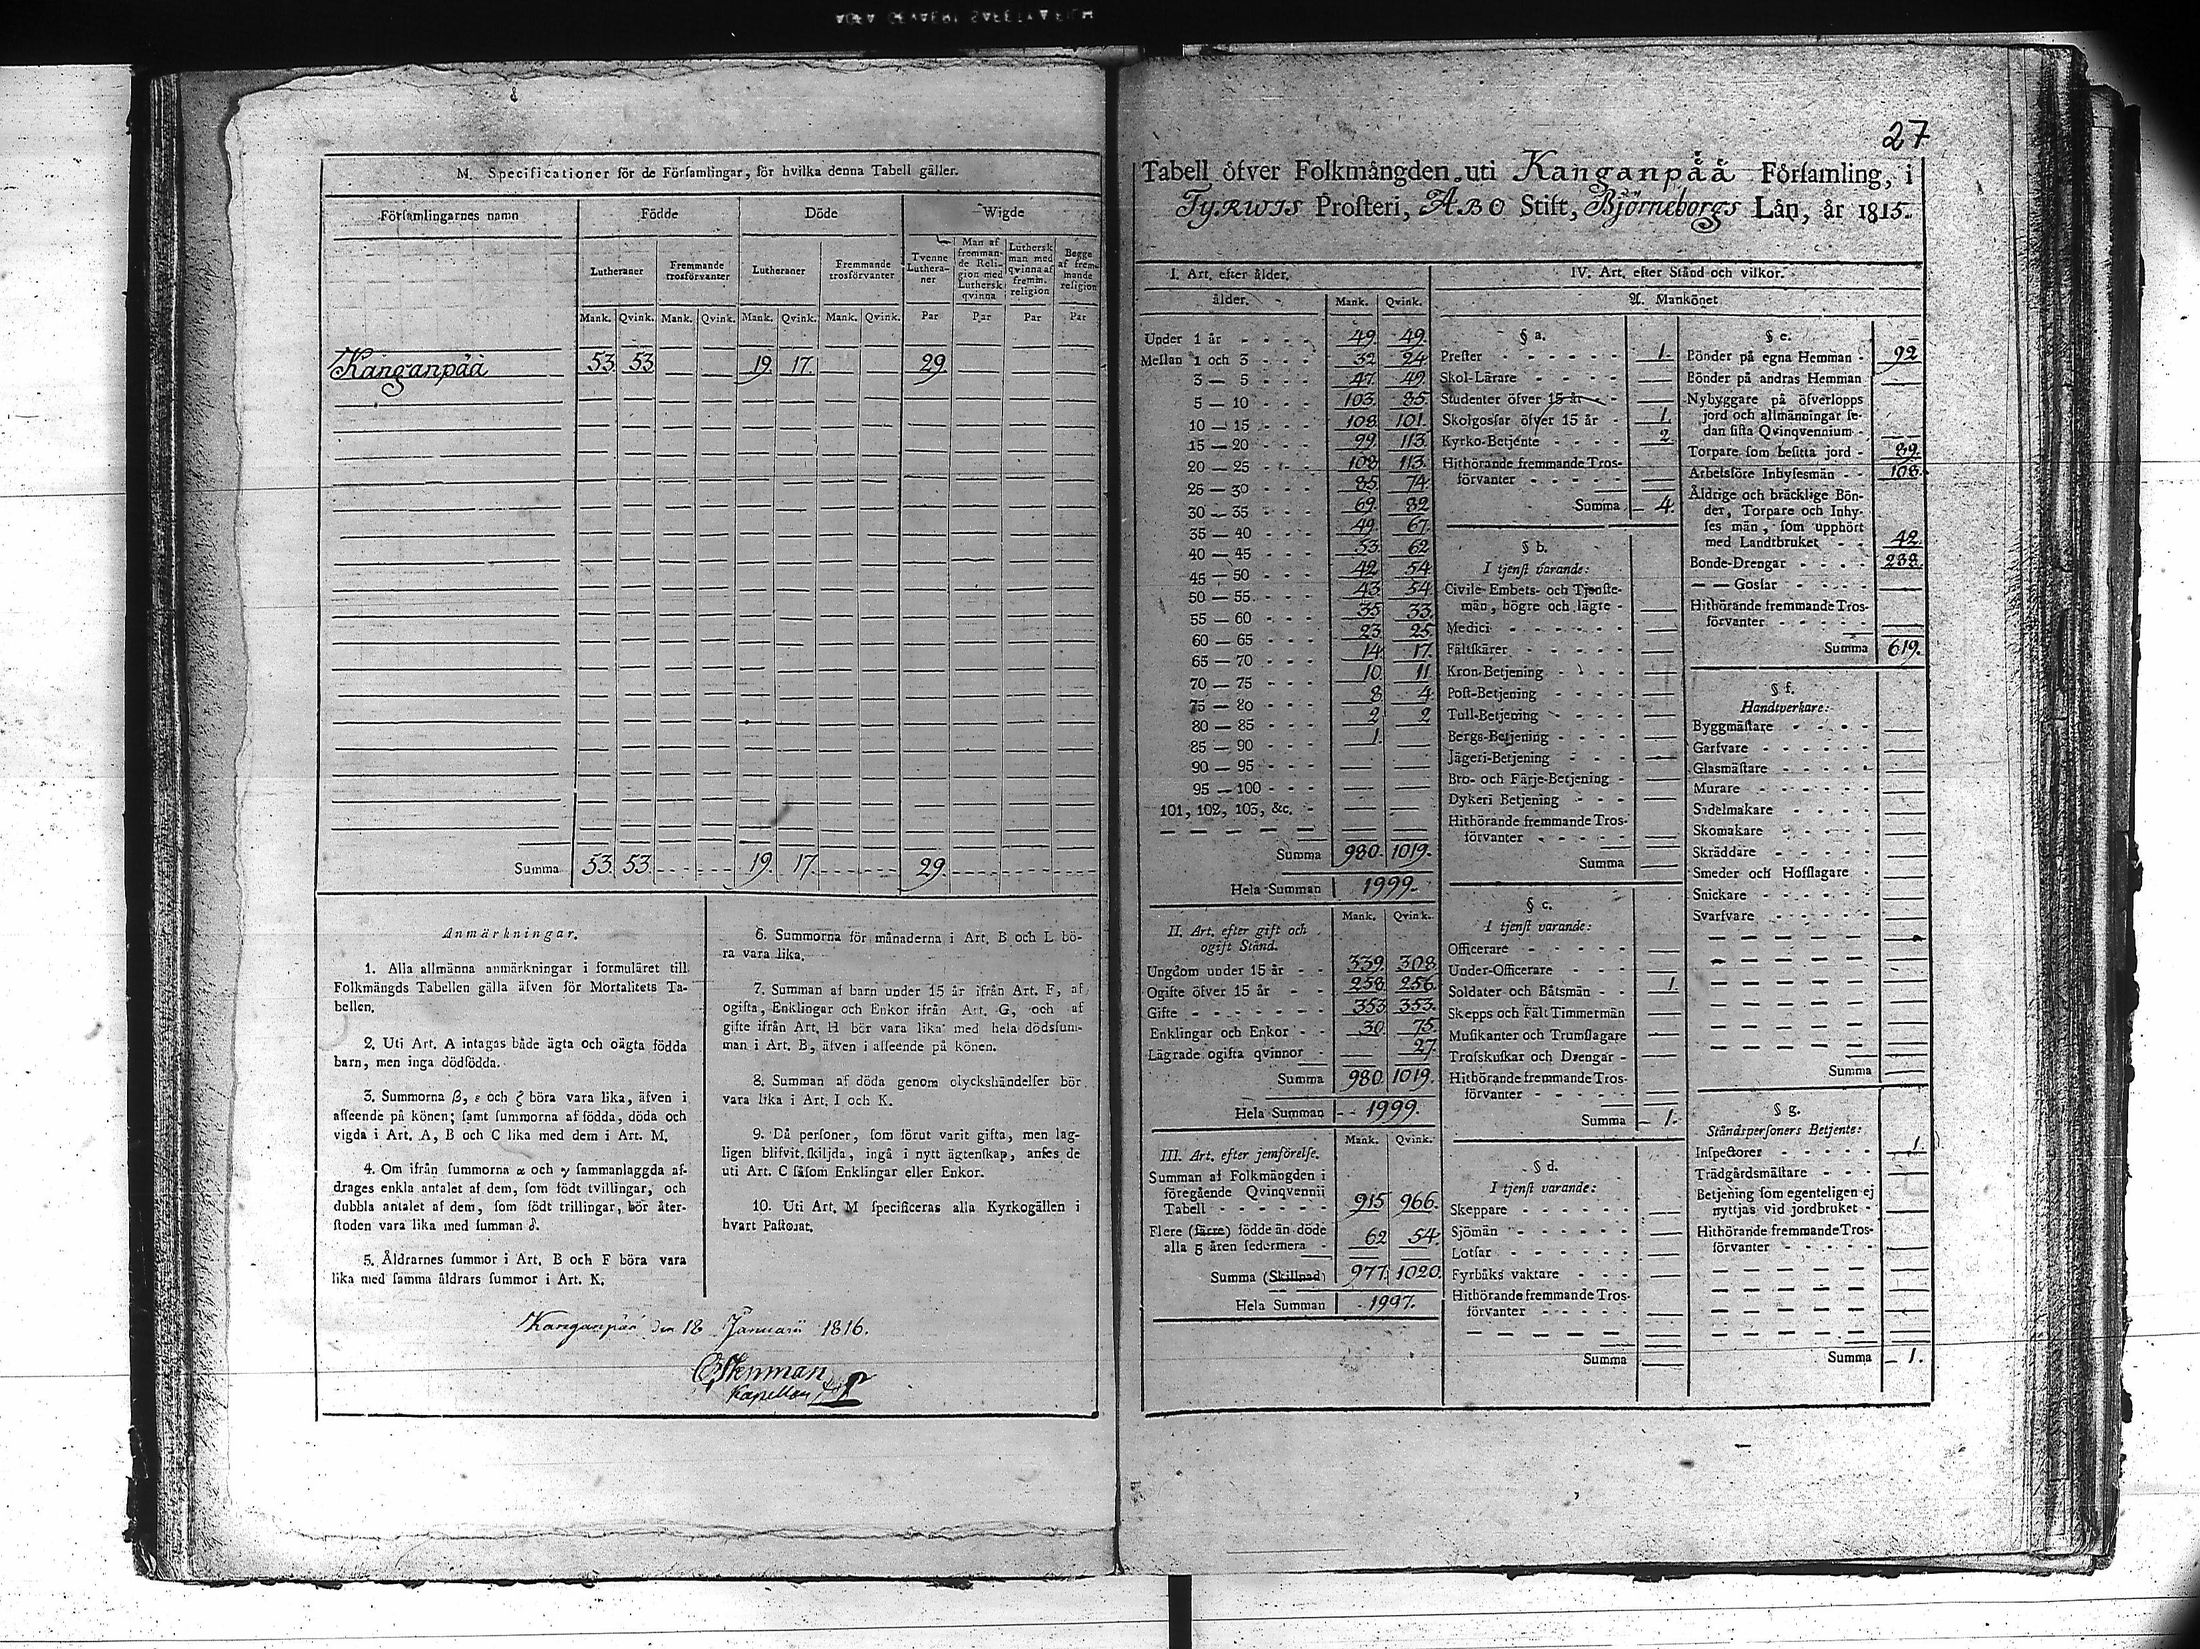 M. Specificationer för de Församlingar, för hvilka denna Tabell gäller.
Församlingarnes namn Födde Döde Wigde
Lutheraner Fremmande trosförvanter Lutheraner Fremmande trosförvanter Tvenne Lutheraner Man af fremmande Religion med Luthersk qvinna Luthersk man med qvinna af fremm. religion Begge af fremmande religion
Mank. Qvink. Mank. Qvink. Mank. Qvink. Mank. Qvink. Par Par Par Par
Kanganpää 53. 53. 19. 17. 29.
Summa 53. 53. 19. 17. 29.
Anmärkningar.
1. Alla allmänna anmärkningar i formuläret till
Folkmängds Tabellen gälla äfven för Mortalitets Ta-
bellen.
2. Uti Art. A intagas både ägta och oägta födda
barn, men inga dödfödda.
3. Summorna β, ε och ζ böra vara lika, äfven i
afseende på könen; samt summorna af födda, döda och
vigda i Art. A, B och C lika med dem i Art. M.
4. Om ifrån summorna α och γ sammanlaggda af-
drages enkla antalet af dem, som födt tvillingar, och
dubbla antalet af dem, som födt trillingar, bör åter-
stoden vara lika med summan δ.
5. Åldrarnes summor i Art. B och F böra vara
lika med samma åldrars summor i Art. K.
6. Summorna för månaderna i Art. B och L bö-
ra vara lika.
7. Summan af barn under 15 år ifrån Art. F, af
ogifta, Enklingar och Enkor ifrån Art. G, och af
gifte ifrån Art. H bör vara lika med hela dödsum-
man i Art. B, äfven i afseende på könen.
8. Summan af döda genom olyckshändelser bör
vara lika i Art. I och K.
9. Då personer, som förut varit gifta, men lag-
ligen blifvit skiljda, ingå i nytt ägtenskap, anses de
uti Art. C såsom Enklingar eller Enkor.
10. Uti Art. M specificeras alla Kyrkogällen i
hvart Pastorat.
Kanganpää den 18 Januarii 1816.
Kapellan
27
Tabell öfver Folkmängden uti Kanganpää Församling, i
Tyrwis Prosteri, Åbo Stift, Björneborgs Län, år 1815.
I. Art. efter ålder.
ålder. Mank. Qvink.
Under 1 år 49. 49.
Mellan 1 och 3 32 24
3 — 5 47. 49.
5 — 10 103. 85.
10 — 15 108. 101.
15 — 20 99. 113.
20 — 25 108 113.
25 — 30 85. 74.
30 — 35 69. 82
35 — 40 49. 67.
40 — 45 53. 62
45 — 50 42. 54
50 — 55 43. 54.
55 — 60 35 33.
60 — 65 23. 25
65 — 70 14. 17.
70 — 75 10. 11
75 — 80 8 4.
80 — 85 2. 2
85 — 90 1.
90 — 95
95 — 100
101, 102, 103, &c.
Summa 980. 1019.
Hela Summan 1999.
II. Art. efter gift och ogift Stånd. Mank. Qvink.
Ungdom under 15 år 339. 308.
Ogifte öfver 15 år 258. 256.
Gifte 353. 353.
Enklingar och Enkor 30. 75.
Lägrade ogifta qvinnor 27.
Summa 980. 1019.
Hela Summan 1999.
III. Art. efter jemförelse. Mank. Qvink.
Summan af Folkmängden i
föregående Qvinqvennii
Tabell 915 966.
Flere (färre) födde än döde
alla 5 åren sedermera 62 54.
Summa (Skillnad) 977. 1020.
Hela Summan 1997.
IV. Art. efter Stånd och vilkor.
A. Mankönet
§ a.
Prester 1.
Skol-Lärare
Studenter öfver 15 år
Skolgossar öfver 15 år 1.
Kyrko-Betjente 2.
Hithörande fremmande Tros-
förvanter
Summa 4.
§ b.
I tjenst varande:
Civile Embets- och Tjenste-
män, högre och lägre
Medici
Fältskärer
Kron-Betjening
Post-Betjening
Tull-Betjening
Bergs-Betjening
Jägeri-Betjening
Bro- och Färje-Betjening
Dykeri Betjening
Hithörande fremmande Tros-
förvanter
Summa
§ c.
I tjenst varande:
Officerare
Under-Officerare
Soldater och Båtsmän 1.
Skepps och Fält Timmermän
Musikanter och Trumslagare
Trosskuskar och Drengar
Hithörande fremmande Tros-
förvanter
Summa 1.
§ d.
I tjenst varande:
Skeppare
Sjömän
Lotsar
Fyrbåks vaktare
Hithörande fremmande Tros-
förvanter
Summa
§ e.
Bönder på egna Hemman 92
Bönder på andras Hemman
Nybyggare på öfverlopps
jord och allmänningar se-
dan sista Qvinqvennium
Torpare som besitta jord 89.
Arbetsföre Inhysesmän 108.
Åldrige och bräcklige Bön-
der, Torpare och Inhy-
ses män, som upphört
med Landtbruket 42.
Bonde-Drengar 288.
— — Gossar
Hithörande fremmande Tros-
förvanter
Summa 619.
§ f.
Handtverkare:
Byggmästare
Garfvare
Glasmästare
Murare
Sadelmakare
Skomakare
Skräddare
Smeder och Hofslagare
Snickare
Svarfvare
Summa
§ g.
Ståndspersoners Betjente:
Inspectorer 1.
Trädgårdsmästare
Betjening som egenteligen ej
nyttjas vid jordbruket
Hithörande fremmande Tros-
förvanter
Summa 1.